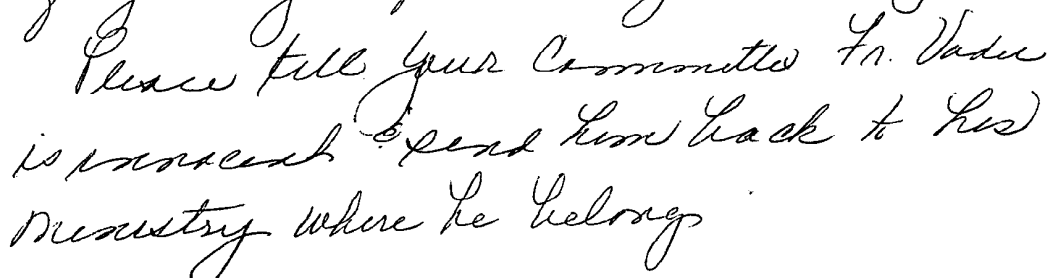 Please tell your Committe Fr. Vader
is innocent & send him back to his
ministry where he belongs